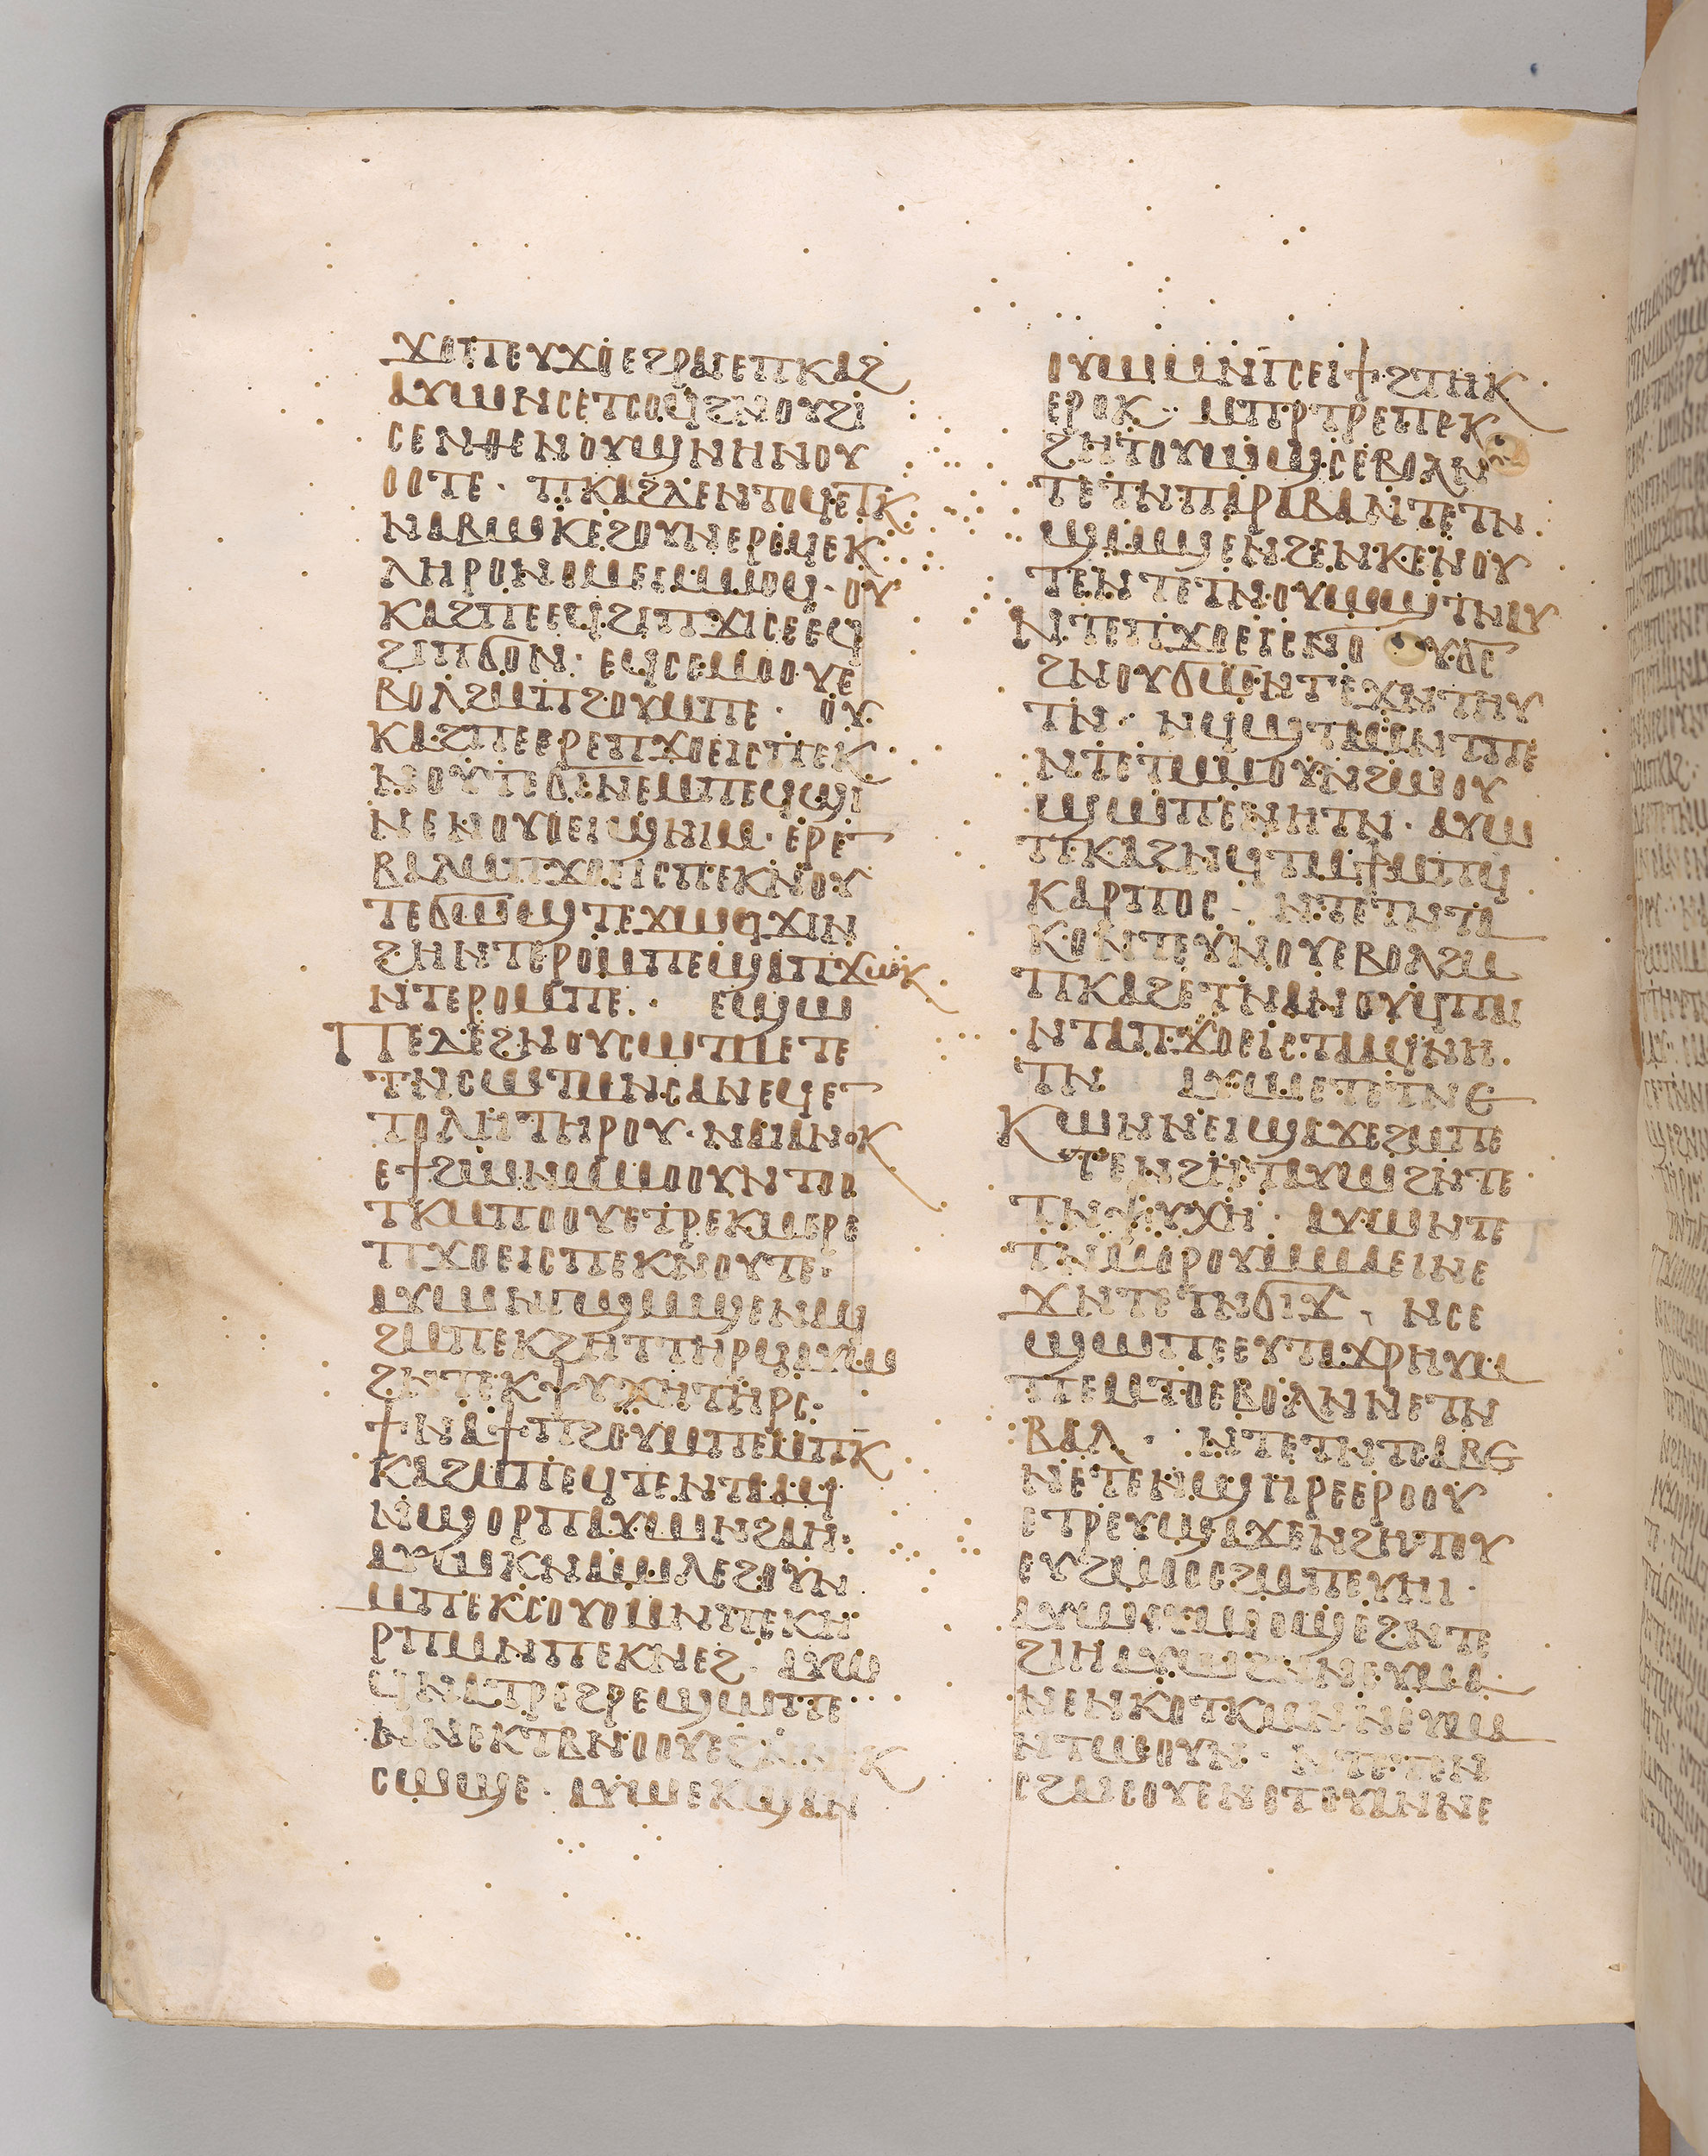 ϫⲟⲡⲉⲩϫⲟⲉϩⲣⲁⲓⲉⲡⲕⲁϩ
ⲁⲩⲱⲛⲥⲉⲧⲥⲟϥϩⲛⲟⲩϩⲓ
ⲥⲉⲛⲑⲉⲛⲟⲩϣⲛⲏⲛⲟⲩ
ⲟⲟⲧⲉ· ⲡⲕⲁϩⲇⲉⲛⲧⲟϥⲉⲧⲕ
ⲛⲁⲃⲱⲕⲉϩⲟⲩⲛⲉⲣⲟϥⲉⲕ
ⲗⲏⲣⲟⲛⲟⲙⲉⲓⲙⲙⲟϥ· ⲟⲩ
ⲕⲁϩⲡⲉⲉϥϩⲓⲡϫⲓⲥⲉⲉϥ
ϩⲓⲡϭⲟⲛ· ⲉϥⲥⲉⲙⲟⲟⲩⲉ
ⲃⲟⲗϩⲙⲡϩⲟⲩⲙⲡⲉ· ⲟⲩ
ⲕⲁϩⲡⲉⲉⲣⲉⲡϫⲟⲉⲓⲥⲡⲉⲕ
ⲛⲟⲩⲧⲉϭⲓⲛⲉⲙⲡⲉϥϣⲓ
ⲛⲉⲛⲟⲩⲟⲉⲓϣⲛⲓⲙ· ⲉⲣⲉⲛ
ⲃⲁⲗⲙⲡϫⲟⲉⲓⲥⲡⲉⲕⲛⲟⲩ
ⲧⲉϭⲱϣⲧⲉϫⲱϥϫⲓⲛ
ϩⲏⲛⲧⲉⲣⲟⲙⲡⲉϣⲁⲡϫⲱⲕ
ⲛⲧⲉⲣⲟⲙⲡⲉ· ⲉϣⲱ
ⲡⲉⲇⲉϩⲛⲟⲩⲥⲱⲧⲙⲉⲧⲉ
ⲧⲛⲥⲱⲧⲙⲛⲥⲁⲛⲉϥⲉⲛ
ⲧⲟⲗⲏⲧⲏⲣⲟⲩ· ⲛⲁⲓⲁⲛⲟⲕ
ⲉϯϩⲱⲛⲙⲙⲟⲟⲩⲛⲧⲟⲟ
ⲧⲕⲙⲡⲟⲟⲩⲉⲧⲣⲉⲕⲙⲉⲣⲉ
ⲡϫⲟⲉⲓⲥⲡⲉⲕⲛⲟⲩⲧⲉ·
ⲁⲩⲱⲛⲅϣⲙϣⲉⲛⲁϥ
ϩⲙⲡⲉⲕϩⲏⲧⲧⲏⲣϥⲁⲩⲱ
ϩⲛⲧⲉⲕⲯⲩⲭⲏⲧⲏⲣⲥ·
ϯⲛⲁϯⲡϩⲟⲩⲙⲡⲉⲙⲡⲕ
ⲕⲁϩⲙⲡⲉϥⲧⲉⲛⲧⲁⲁϥ
ⲛϣⲟⲣⲡⲁⲩⲱⲛϩⲁⲏ·
ⲁⲩⲱⲕⲛⲁⲱⲗⲉϩⲟⲩⲛ
ⲙⲡⲉⲕⲥⲟⲩⲟⲙⲛⲡⲉⲕⲏ
ⲣⲡⲙⲛⲡⲉⲕⲛⲉϩ· ⲁⲩⲱ
ϥⲛⲁⲧⲣⲉϩⲣⲉϣⲱⲡⲉ
ⲛⲛⲉⲕⲧⲃⲛⲟⲟⲩⲉϩⲛⲛⲉⲕ
ⲥⲱϣⲉ· ⲁⲩⲱⲉⲕϣⲁⲛ
ⲟⲩⲱⲙⲛⲅⲥⲉⲓϯϩⲧⲏⲕ
ⲉⲣⲟⲕ· ⲙⲡⲣⲧⲣⲉⲡⲉⲕ
ϩⲏⲧⲟⲩⲱϣⲥⲉⲃⲟⲗⲛ
ⲧⲉⲧⲛⲡⲁⲣⲁⲃⲁⲛⲧⲉⲧⲛ
ϣⲙϣⲉⲛϩⲉⲛⲕⲉⲛⲟⲩ
ⲧⲉⲛⲧⲉⲧⲛⲟⲩⲱϣⲧⲛⲁⲩ
ⲛⲧⲉⲡϫⲟⲉⲓⲥⲛⲟⲩϭⲥ
ϩⲛⲟⲩϭⲱⲛⲧⲉϫⲛⲧⲏⲩ
ⲧⲛ· ⲛϥϣⲧⲁⲙⲛⲧⲡⲉ
ⲛⲧⲉⲧⲙⲙⲟⲩⲛϩⲱⲟⲩ
ϣⲱⲡⲉⲛⲏⲧⲛ· ⲁⲩⲱ
ⲡⲕⲁϩⲛϥⲧⲙϯⲙⲡϥ
ⲕⲁⲣⲡⲟⲥ ⲛⲧⲉⲧⲛⲧⲁ
ⲕⲟϩⲛⲟⲩϭⲉⲡⲏⲉⲃⲟⲗϩⲙ
ⲡⲕⲁϩⲉⲧⲛⲁⲛⲟⲩϥⲡⲁⲓ
ⲛⲧⲁⲡϫⲟⲉⲓⲥⲧⲁⲁϥⲛⲏ
ⲧⲛ ⲁⲩⲱⲉⲧⲉⲧⲛⲉ
ⲕⲱⲛⲛⲉⲓϣⲁϫⲉϩⲙⲡⲉ
ⲧⲛϩⲏⲧⲁⲩⲱϩⲛⲧⲉ
ⲧⲛⲯⲩⲭⲏ· ⲁⲩⲱⲛⲧⲉ
ⲧⲛⲙⲟⲣⲟⲩⲙⲙⲁⲉⲓⲛⲉ
ϫⲛⲧⲉⲧⲛϭⲓϫ· ⲛⲥⲉ
ϣⲱⲡⲉⲉⲩⲧⲁϫⲣⲏⲩⲙ
ⲡⲉⲙⲧⲟⲉⲃⲟⲗⲛⲛⲉⲧⲛ
ⲃⲁⲗ· ⲛⲧⲉⲧⲛⲧⲥⲁⲃⲉ
ⲛⲉⲧⲉⲛϣⲏⲣⲉⲉⲣⲟⲟⲩ
ⲉⲧⲣⲉⲩϣⲁϫⲉⲛϩⲏⲧⲟⲩ
ⲉⲩϩⲙⲟⲟⲥϩⲙⲡⲉⲩⲏⲓ·
ⲁⲩⲱⲉⲩⲙⲟⲟϣⲉϩⲛⲧⲉ
ϩⲓⲏⲁⲩⲱϩⲛⲛⲉⲩⲙⲁ
ⲛⲉⲛⲕⲟⲧⲕⲙⲛⲛⲉⲩⲙⲁ
ⲛⲧⲱⲟⲩⲛ· ⲛⲧⲉⲧⲛ
ⲥϩⲁⲓⲥⲟⲩⲉⲛⲉⲧⲟⲩⲁⲛⲛⲉ